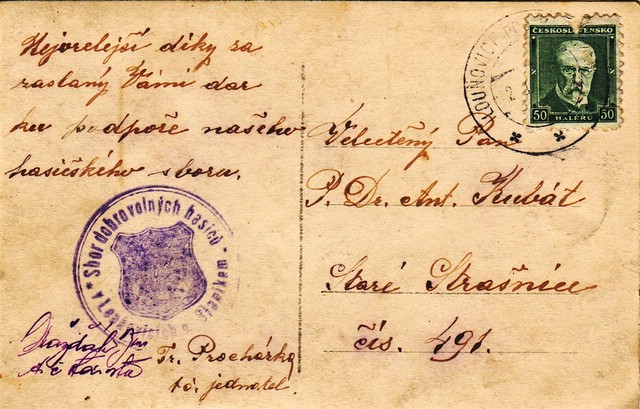 Nejvrelejší díky za
zaslaný Vámi dar
ku podpoře našeho
hasičského sboru.
Sbor dobrovolných hasičů
Fr. Procházka
t.č. jednatel.
ČESKOSLOVENSKO
50 HALÉŘŮ 50
LOUNOVICE
Velectěný Pan
P. Dr. Ant. Kubát
Staré Strašnice
čís. 491.